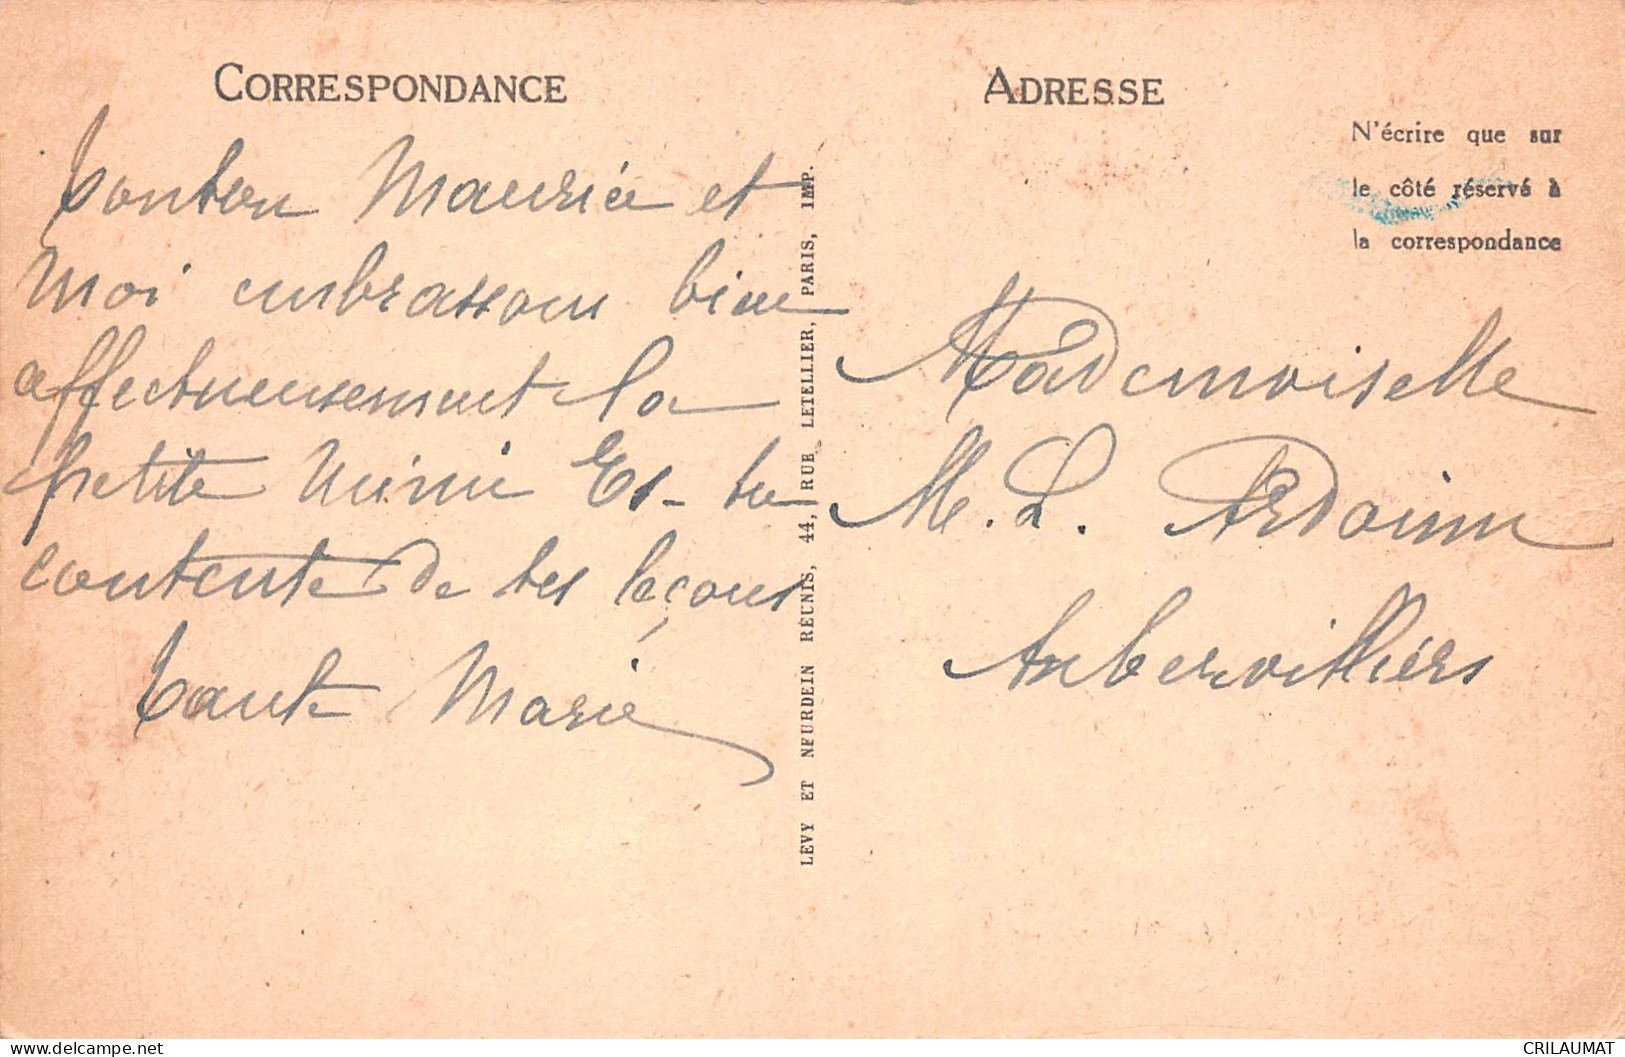 CORRESPONDANCE
Tonton Maurice et
moi embrassons bien
affectueusement la
petite Mimi Es-tu
contente de tes leçons
Tante Marie
LEVY ET NEURDEIN RÉUNIS, 44, RUE LETELLIER, PARIS, IMP.
ADRESSE
N'écrire que sur
le côté réservé à
la correspondance
Mademoiselle
M. L. Ardouin
Aubervilliers
CRILAUMAT
Delcampe.net